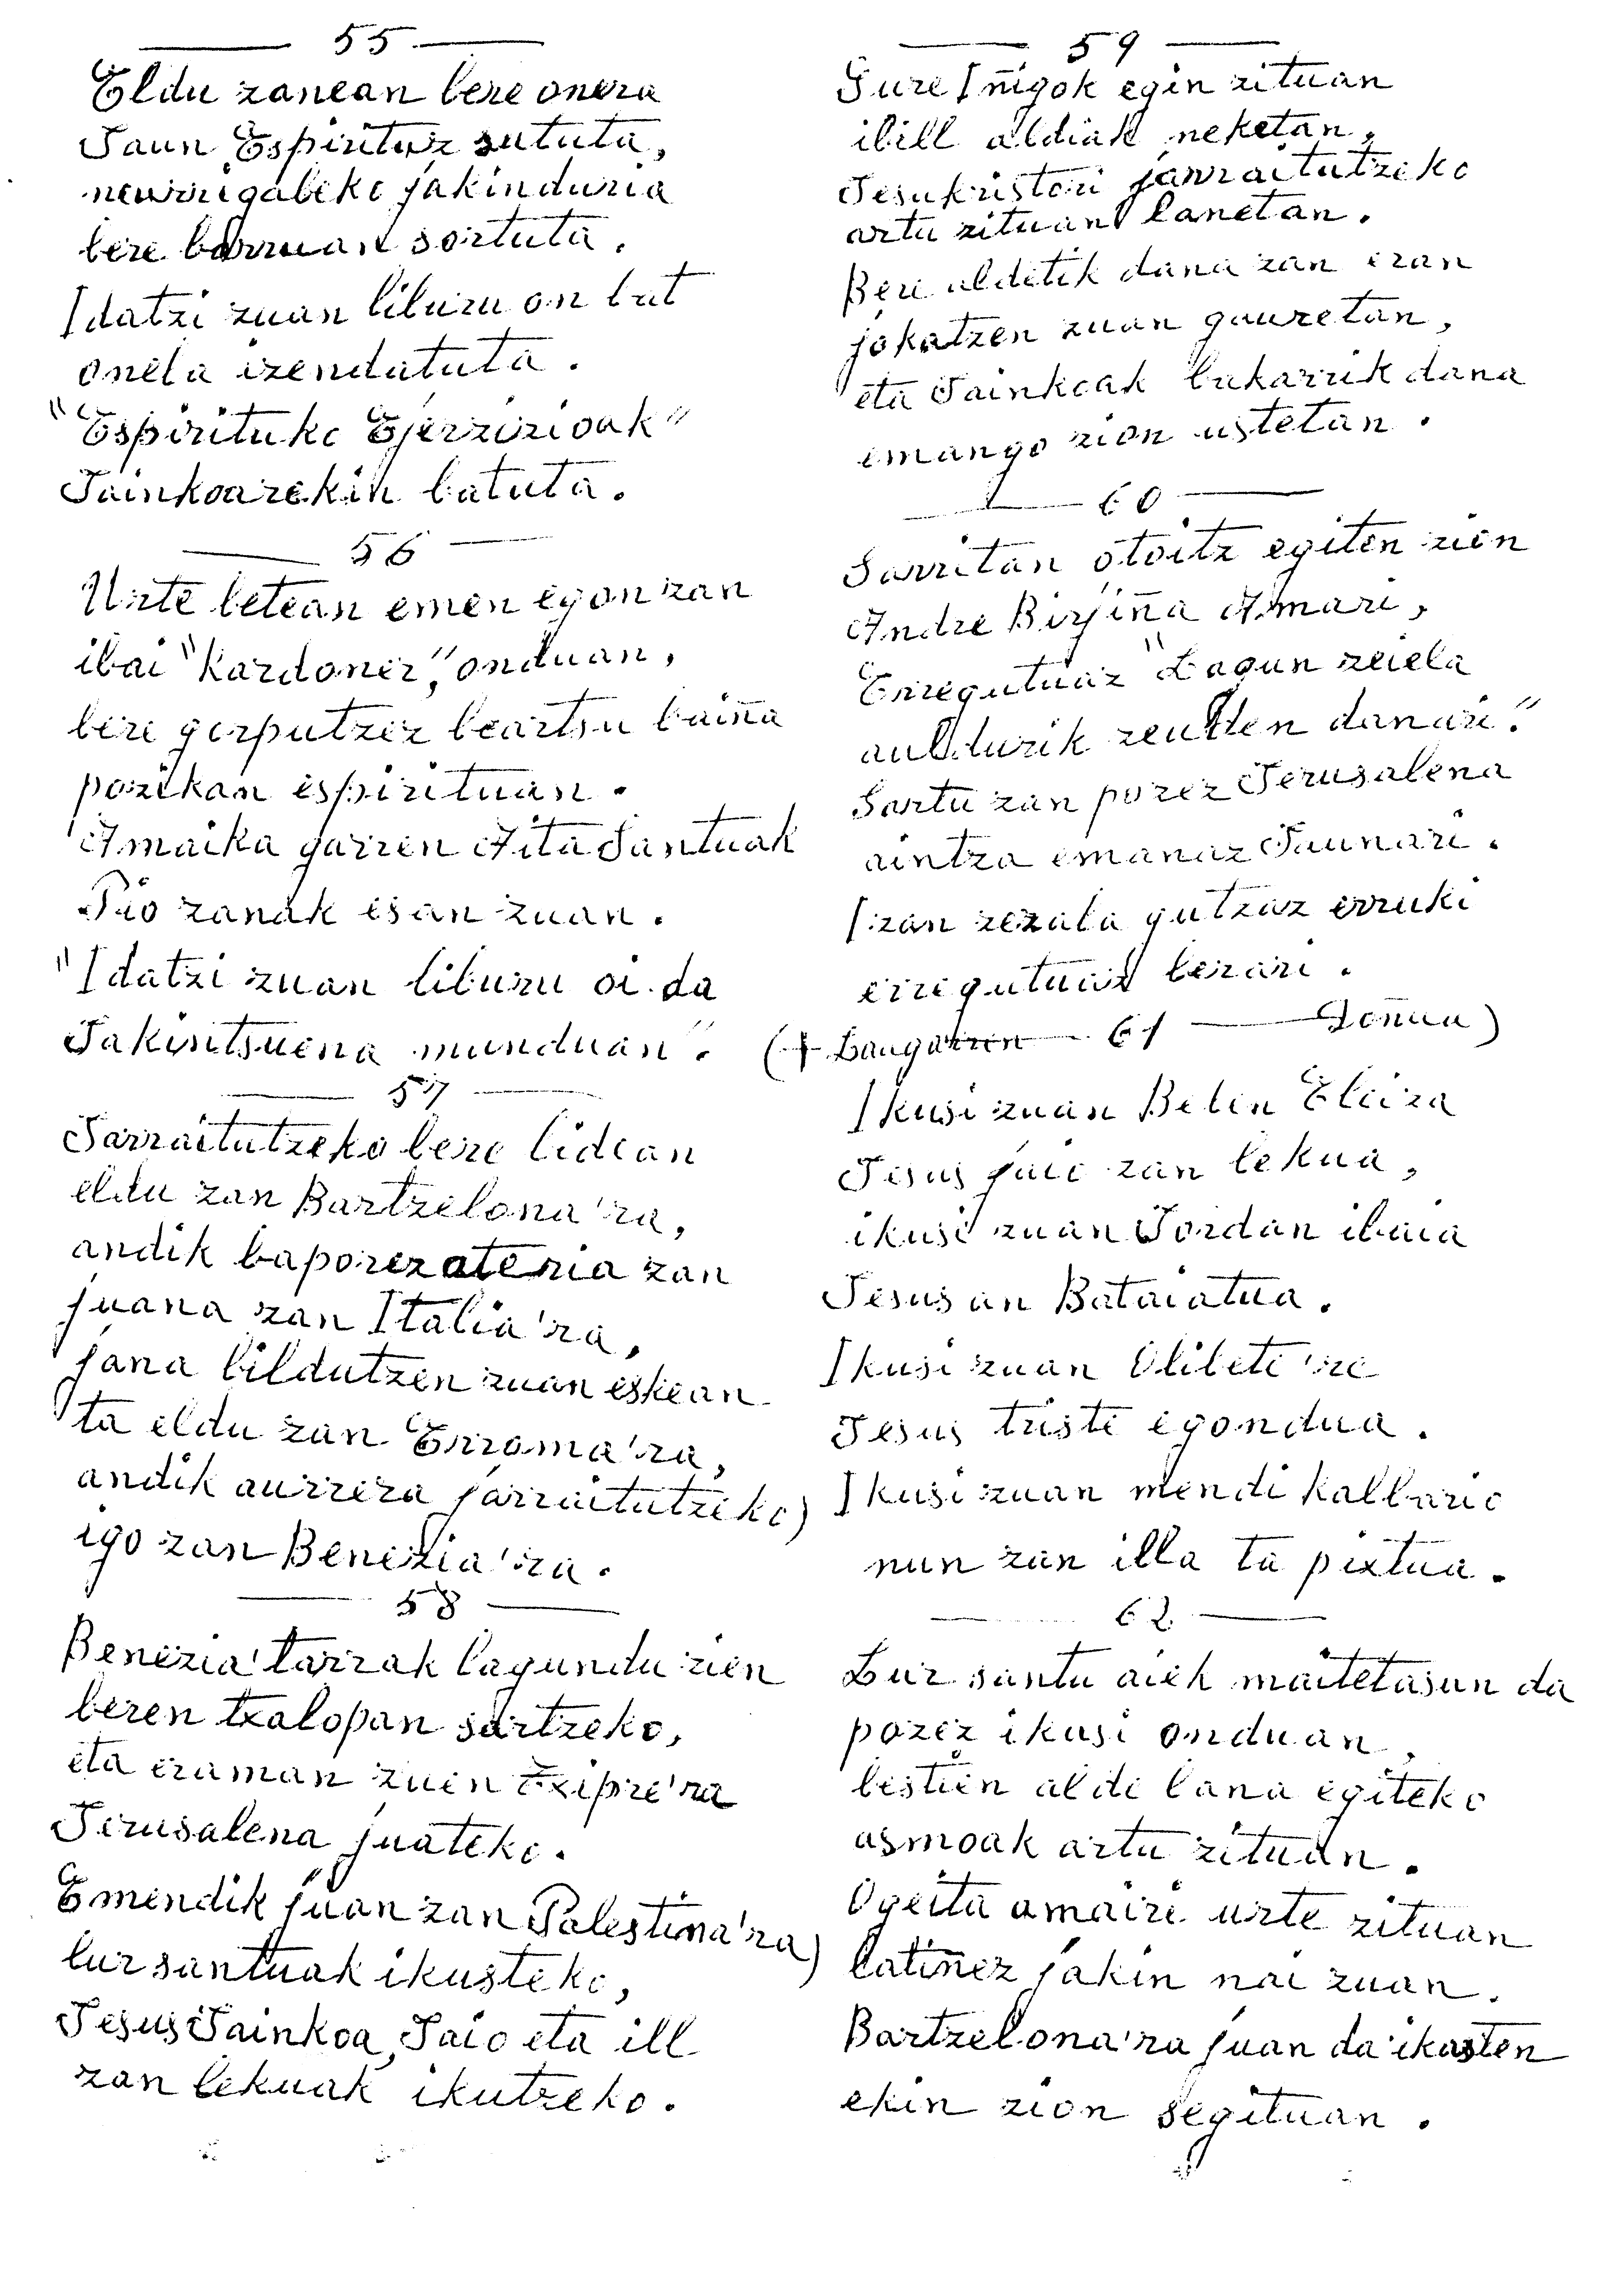 55
Eldu zanean bere onera
Jaun Espirituz sututa,
neurrigabeko jakinduria
bere barruan sortuta.
Idatzi zuan liburu on bat
onela izendatuta.
"Espirituko Ejerzizioak"
Jainkoarekin batuta.
56
Urte betean emen egon zan
ibai "Kardoner", onduan,
bere gorputzez beartsu baiña
pozikan espirituan.
Amaika garren Aita Santuak
Pio zanak esan zuan.
"Idatzi zuan liburu oi da
Jakintsuena munduan".
57
Jarraitutzeko bere bidean
eldu zan Bartzelona'ra,
andik baporez ateria zan
juana zan Italia'ra,
jana bildutzen zuan eskean
ta eldu zan Erroma'ra,
andik aurrera jarraitutzeko)
igo zan Benezia'ra.
58
Benezia'tarrak lagundu zien
beren txalopan sartzeko,
eta eraman zuen Txipre'ra
Jerusalena juateko.
Emendik juan zan Palestina'ra)
lur santuak ikusteko,
Jesus Jainkoa, Jaio eta ill
zan lekuak ikutzeko.
59
Gure Iñigok egin zituan
ibill aldiak neketan,
Jesukristori jarraitutzeko
artu zituan lanetan.
Bere aldetik dana zan eran
jokatzen zuan gauretan,
eta Jainkoak bakarrik dana
emango zion ustetan.
60
Sarritan otoitz egiten zion
Andre Birjiña Amari,
Erregutuaz "Lagun zeiela
auldurik zeuden danari."
Sartu zan pozez Jerusalena
aintza emanaz Jaunari.
Izan zezala gutzaz erruki
erregutuaz berari.
(+ Laugarren 61 Doñua)
Ikusi zuan Belen Eliza
Jesus jaio zan lekua,
ikusi zuan Jordan ibaia
Jesusan Bataiatua.
Ikusi zuan Olibete're
Jesus triste egondua.
Ikusi zuan mendi kalbario
nun zan illa ta piztua.
62
Lur santu aiek maitetasun da
pozez ikusi onduan,
bestien alde lana egiteko
asmoak artu zituan.
Ogeita amairi urte zituan
latiñez jakin nai zuan.
Bartzelona'ra juan da ikasten
ekin zion segituan.